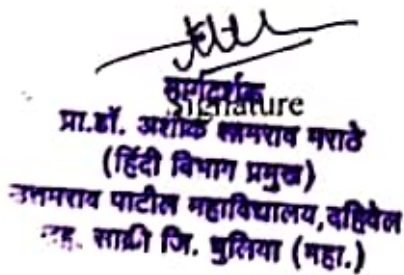 मार्गदर्शक
Signature
प्रा.डॉ. अशोक शामराव मराठे
(हिंदी विभाग प्रमुख)
उत्तमराव पाटील महाविद्यालय,दहिवेल
साक्री जि. धुलिया (महा.)